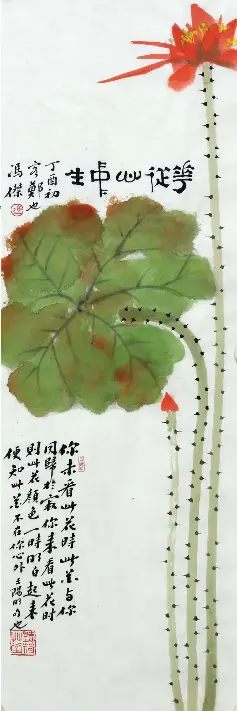 花從心中生
丁酉初
客鄭也
馮傑
你未看此花時此花与你
同歸於寂你来看此花时
則此花顏色一時明白起来
便知此花不在你心外王陽明句也